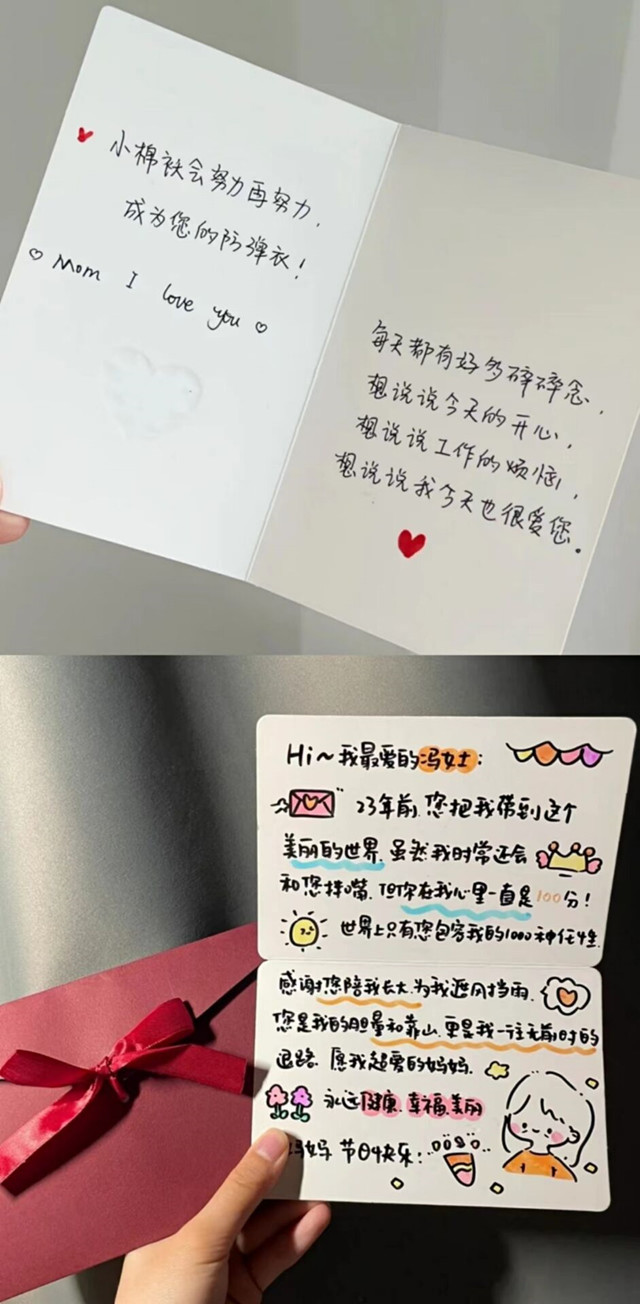 小棉袄会努力再努力，
成为您的防弹衣！
Mom I love you
每天都有好多碎碎念，
想说说今天的开心，
想说说工作的烦恼，
想说说我今天也很爱您。
Hi~我最爱的冯女士：
23年前，您把我带到这个
美丽的世界，虽然我时常还会
和您拌嘴，但你在我心里一直是100分！
世界上只有您包容我的1000种任性
感谢您陪我长大，为我遮风挡雨，
您是我的胆量和靠山，更是我一往无前时的
退路，愿我超爱的妈妈，
永远健康，幸福，美丽
妈妈 节日快乐：